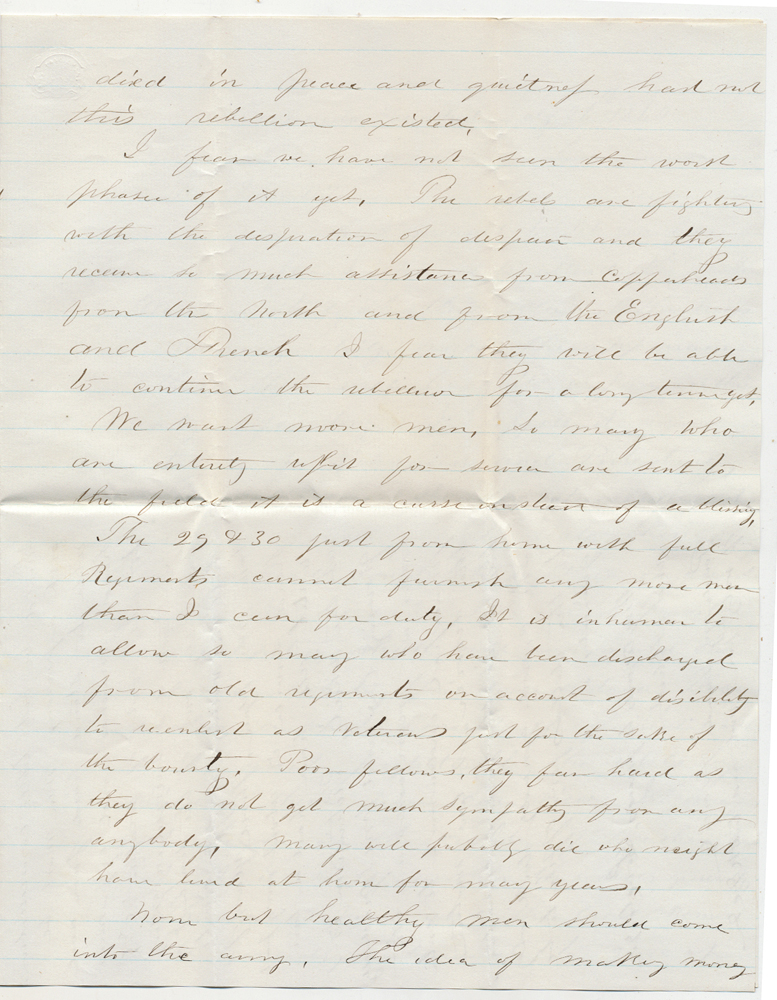 died in peace and quietness had not
this rebellion existed.
I fear we have not seen the worst
phase of it yet. The rebels are fighting
with the desperation of despair and they
receive so much assistance from Copperheads
from the North and from the English
and French I fear they will be able
to continue the rebellion for a long time yet.
We want more men. So many who
are entirely unfit for service are sent to
the field it is a curse instead of a blessing.
The 29 & 30 just from home with full
Regiments cannot furnish any more men
than I can for duty. It is inhuman to
allow so many who have been discharged
from old regiments on account of disibility
to reenlist as Veterans just for the sake of
the bounty. Poor fellows, they fare hard as
they do not get much sympathy from any
anybody, many will probably die who might
have lived at home for many years.
None but healthy men should come
into the army. The idea of making money